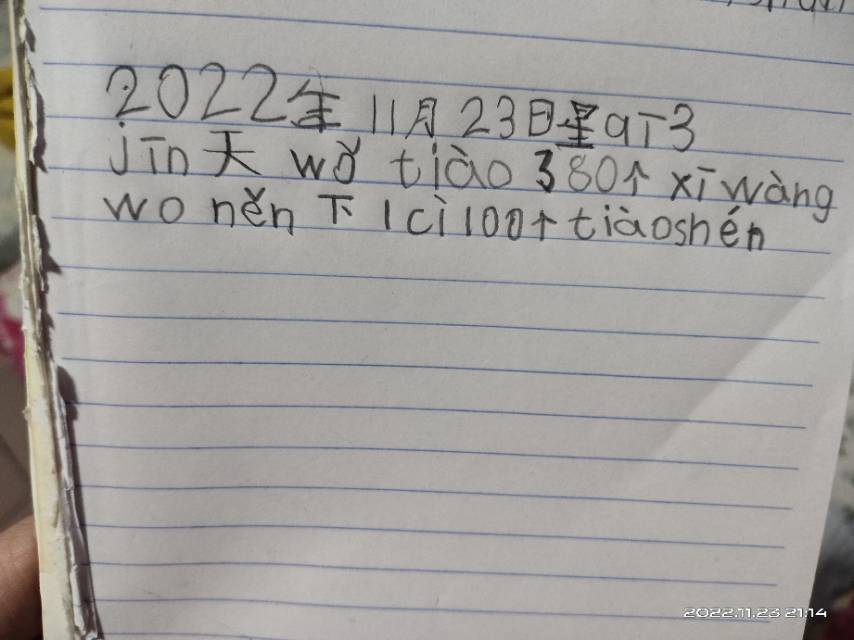 2022年 11月 23日星qī3
jīn天 wǒ tiào 380个 xīwàng
wo něn 下 1cì100个tiàoshén
2022.11.23 21:14